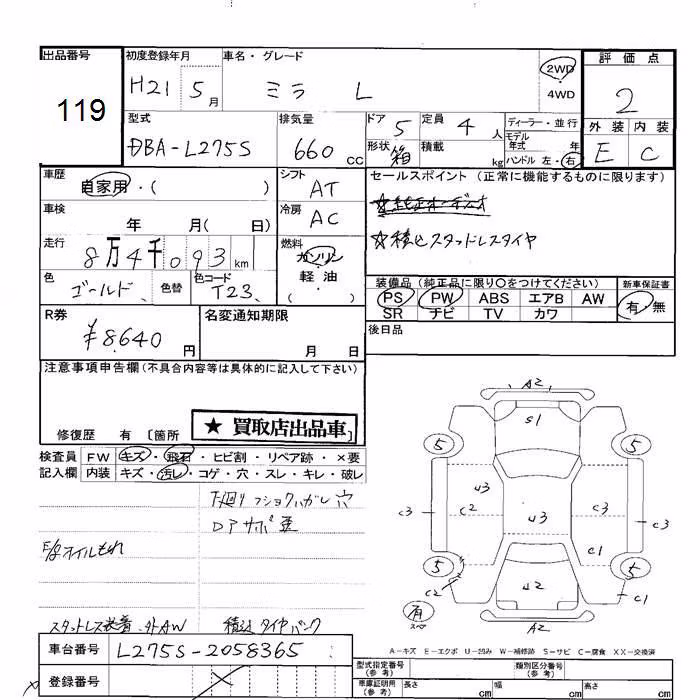 出品番号 初度登録年月 車名・グレード 評価点
119 H21 5月 ミラ L 2WD ・ 4WD 2
型式 排気量 ドア 5 定員 4人 ディーラー・並行 外装 内装
DBA-L275S 660cc 形状 箱 積載 kg モデル年式 年 ハンドル 左・右 E C
車歴 自家用・( ) シフト AT セールスポイント (正常に機能するものに限ります)
車検 年 月( 日) 冷房 AC
走行 8万4千093km 燃料 ガソリン・軽油 ( ) ☆積込スタッドレスタイヤ
色 ゴールド 色替 色コード T23 装備品 (純正品に限り○をつけてください) 新車保証書
PS PW ABS エアB AW 有・無
SR ナビ TV カワ
R券 ¥8640円 名変通知期限 月 日 後日品
注意事項申告欄 (不具合内容等は具体的に記入して下さい)
修復歴 有 〔箇所 ★買取店出品車〕
検査員 FW キズ・飛石・ヒビ割・リペア跡・×要
記入欄 内装 キズ・汚レ・コゲ・穴・スレ・キレ・破レ
下廻り
穴
スタットレス装着・外AW 積込タイヤパンク
車台番号 L275S-2058365
登録番号
A2
S1
5 5
U3
C3 C2 U3 C3 C3
C1
5 5
C2 U2 C1
有 スペア A2
A-キズ E-エクボ U-凹み W-補修跡 S-サビ C-腐食 XX-交換済
型式指定番号(参考) 類別区分番号(参考)
車庫証明用(参考) 長さ cm 幅 cm 高さ cm